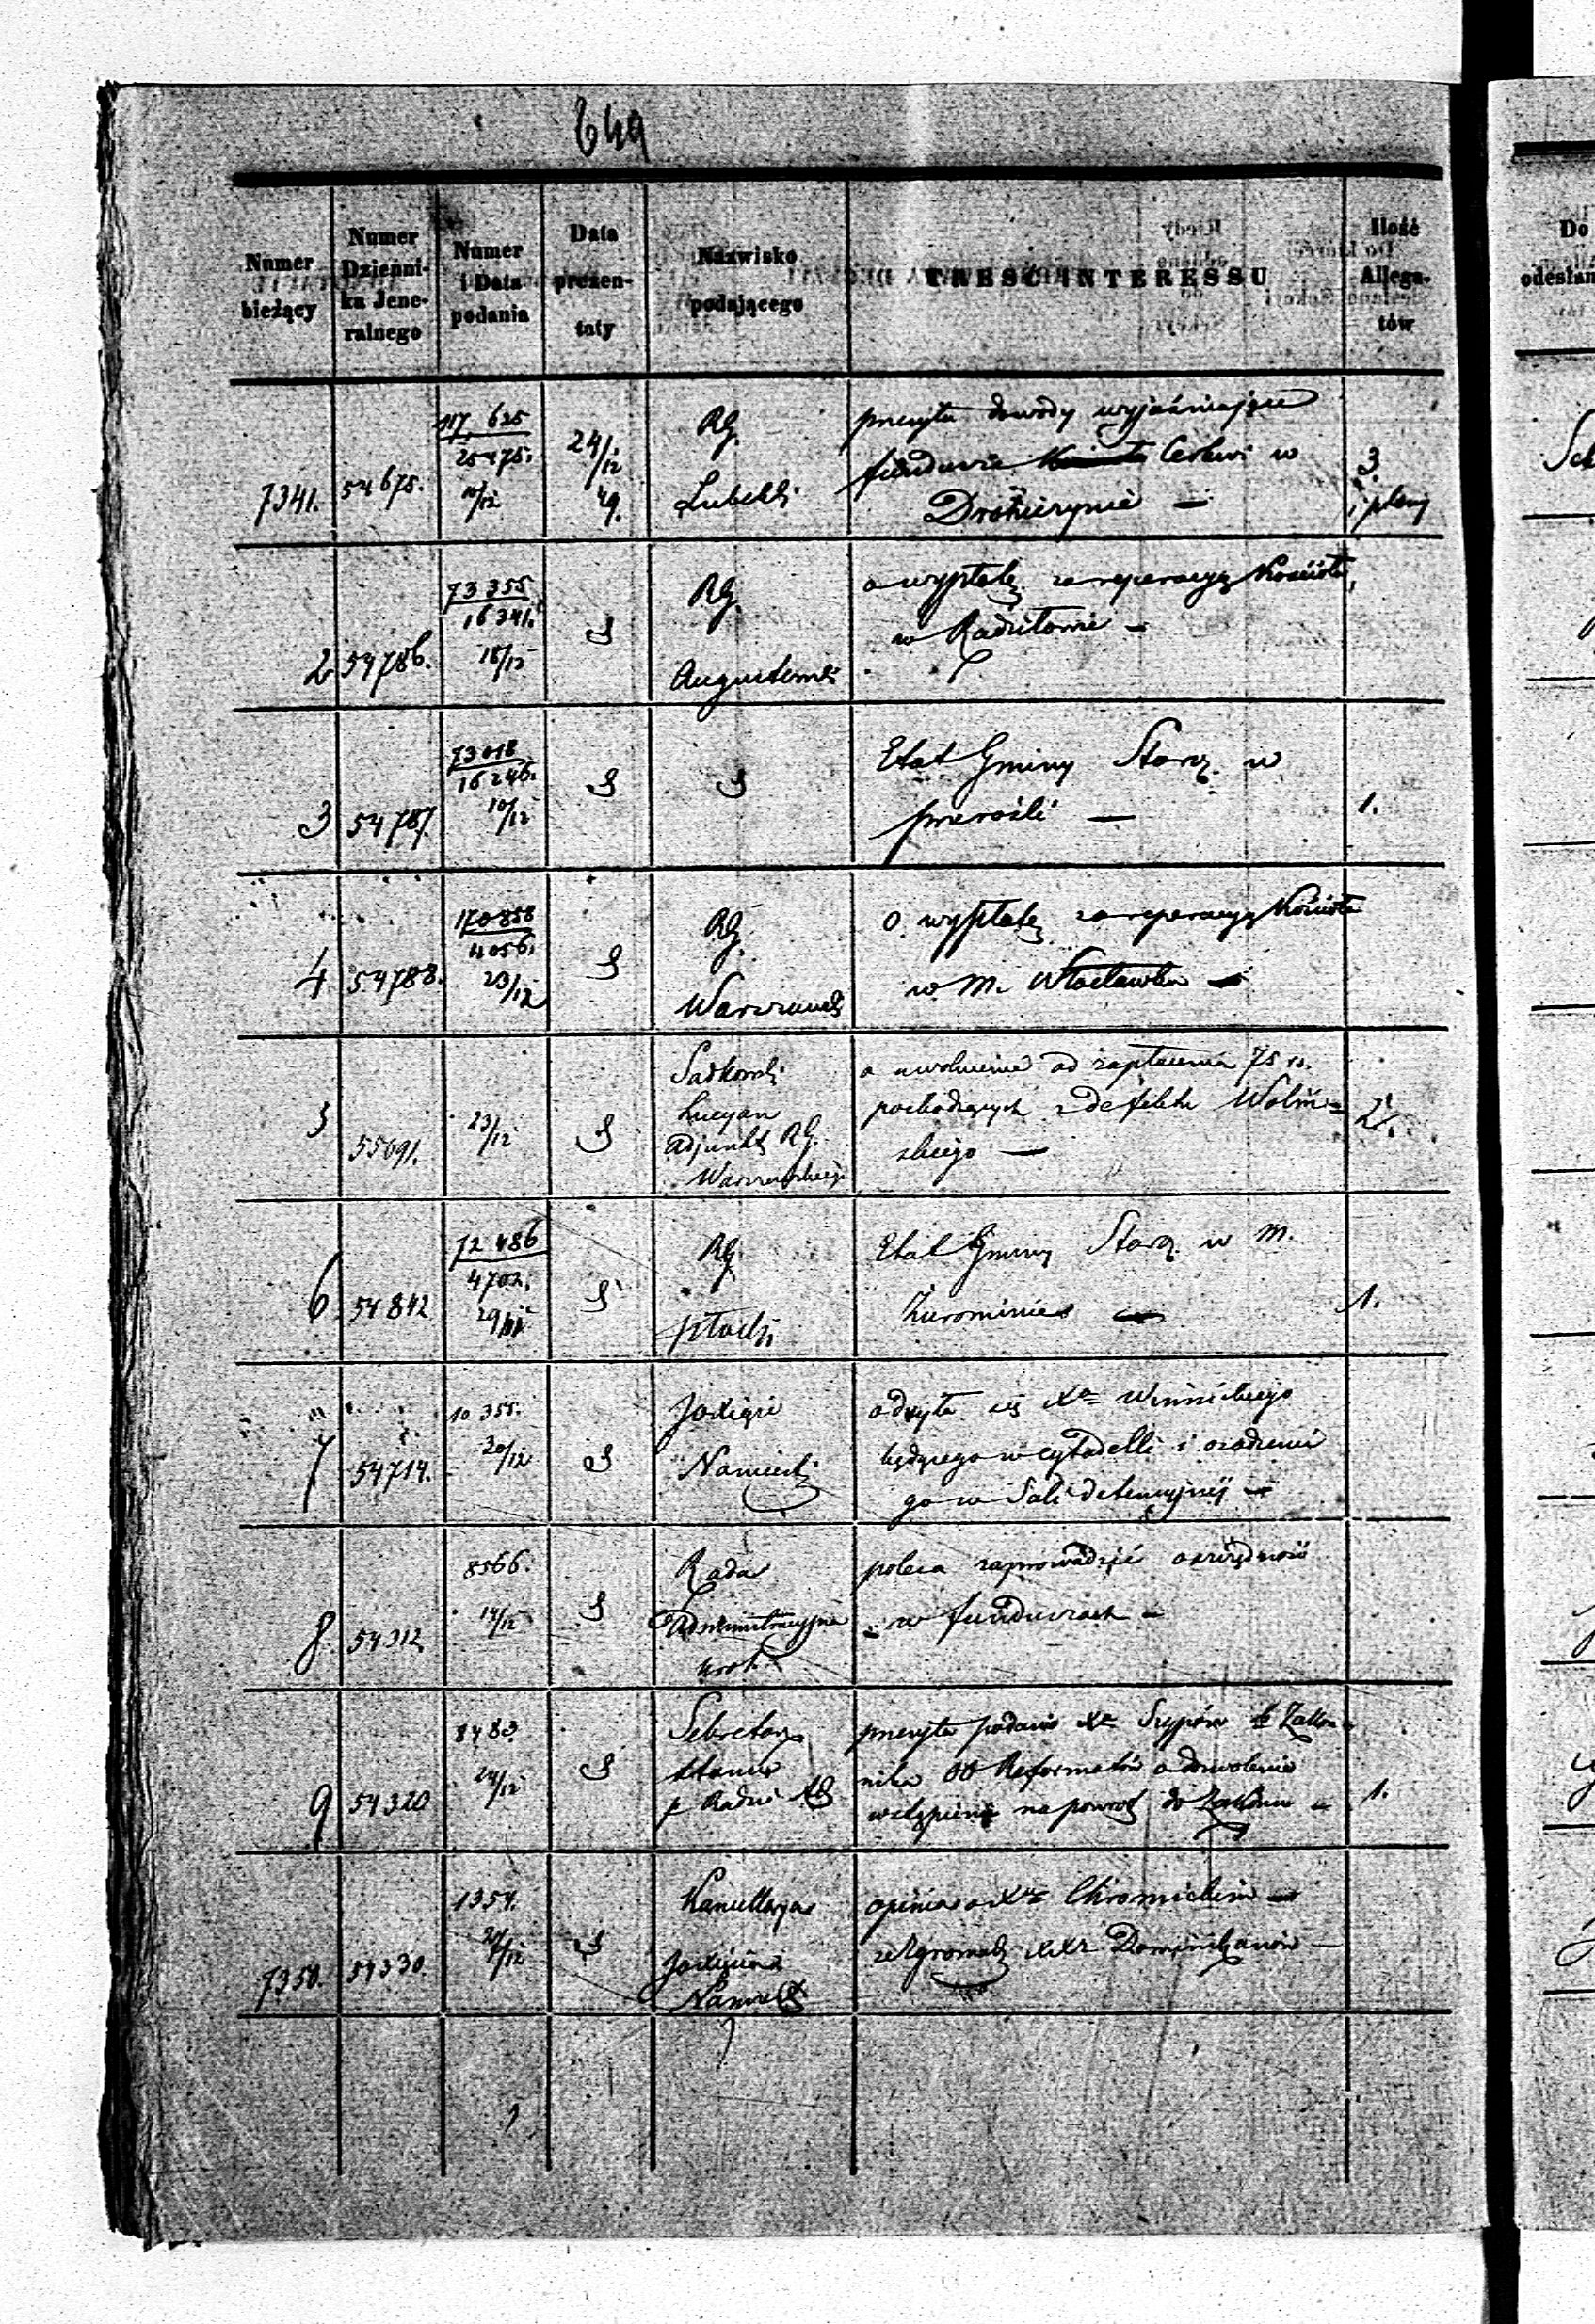 649
Numer bieżący
Numer Dzienni-ka Jene-ralnego
Numer i Data podania
Data prezen-taty
Nazwisko podającego
TREŚĆ INTERESSU
Ilość Allega-tów
7341. 54675. 117,625 / 25475. 24/12 49. RG. Lubelski
przesyła dowody wyjaśniające
fundusze Cerkwi w
3. i plany
2 54786. 73355 / 16341. 18/12 RG. Augustowski
o wypłatę za reperacyą Kościoła
w Radziłowie –
3 54787. 73018 / 16246. 10/12
Etat Gminy Staroz. w
Przerośli —
1.
4 54788. 170858 / 4056. 23/12 RG. Warszawski
o wypłatę za reperacyą Kościoła
w M. Włocławku –
5 55691. 23/12 Sadkowski Lucyan Adjunkt RG. Warszawskiego
o uwolnienie od zapłacenia 75 rs.
pochodzących z defektu Woliń=
skiego —
2.
6 54842 72486 / 4702. 29/11 RG. Płocki
Etat Gminy Staroz. w M.
Żurominie —
1.
7 54714. 10355. 20/12 Namiestn.
odsyła się Xa Winnickiego
będącego w cytadelli i osadzeniu
go w Sali detencyjnéj –
8 54312 8566. 14/12 Rada Administracyjna
poleca zaprowadzić oszczędność
w funduszach –
9 54320 8483. 24/12 Sekretarz Stanu p Radzie
przesyła podanie Xa Zakon-
nika OO Reformatów o dozwolenie
wstąpienia napowrót do Zakonu –
1.
7350. 54330. 1354. Kancellarya Namiest.
opinia o Xu Chromickim –
ze Zgromadz. XX Dominikanów –
Do
odesłan